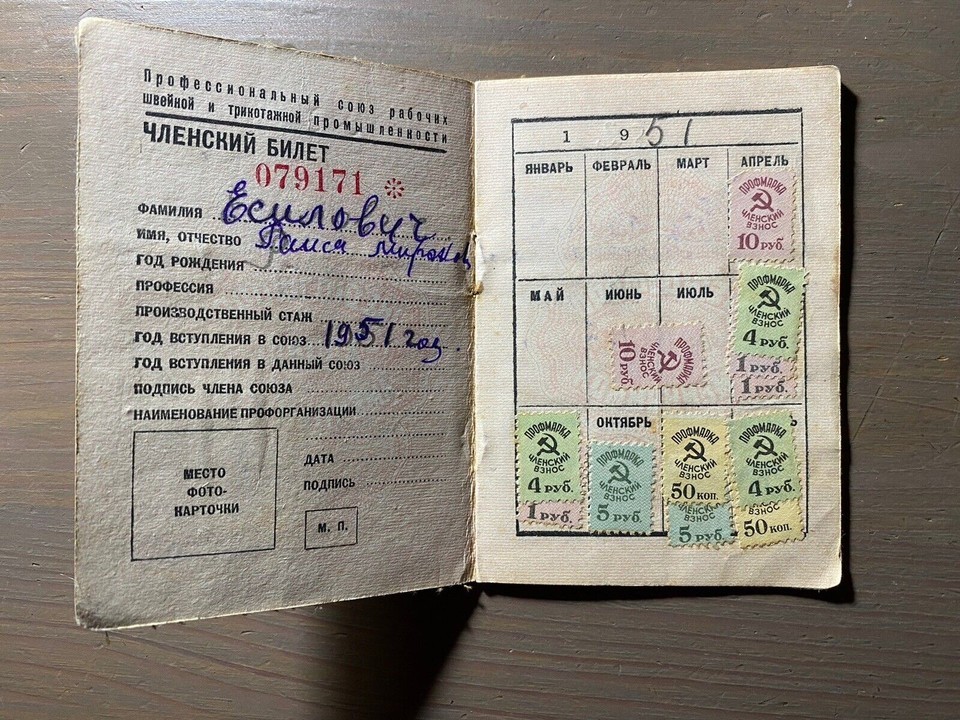 Профессиональный союз рабочих
швейной и трикотажной промышленности
ЧЛЕНСКИЙ БИЛЕТ
079171 *
ФАМИЛИЯ Есилович
ИМЯ, ОТЧЕСТВО Раиса Мироновн
ГОД РОЖДЕНИЯ
ПРОФЕССИЯ
ПРОИЗВОДСТВЕННЫЙ СТАЖ
ГОД ВСТУПЛЕНИЯ В СОЮЗ 1951 год.
ГОД ВСТУПЛЕНИЯ В ДАННЫЙ СОЮЗ
ПОДПИСЬ ЧЛЕНА СОЮЗА
НАИМЕНОВАНИЕ ПРОФОРГАНИЗАЦИИ
МЕСТО
ФОТО-
КАРТОЧКИ
ДАТА
ПОДПИСЬ
М. П.
1951
ЯНВАРЬ ФЕВРАЛЬ МАРТ АПРЕЛЬ
ПРОФМАРКА
ЧЛЕНСКИЙ
ВЗНОС
10 РУБ.
МАЙ ИЮНЬ ИЮЛЬ
ПРОФМАРКА
ЧЛЕНСКИЙ
ВЗНОС
10 РУБ.
ПРОФМАРКА
ЧЛЕНСКИЙ
ВЗНОС
4 РУБ.
1 РУБ.
1 РУБ.
ОКТЯБРЬ
ПРОФМАРКА
ЧЛЕНСКИЙ
ВЗНОС
4 РУБ.
1 РУБ.
ПРОФМАРКА
ЧЛЕНСКИЙ
ВЗНОС
5 РУБ.
ПРОФМАРКА
ЧЛЕНСКИЙ
ВЗНОС
50 КОП.
ЧЛЕНСКИЙ
ВЗНОС
5 РУБ.
ПРОФМАРКА
ЧЛЕНСКИЙ
ВЗНОС
4 РУБ.
ВЗНОС
50 КОП.